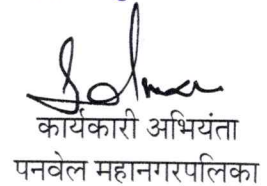 कार्यकारी अभियंता
पनवेल महानगरपलिका